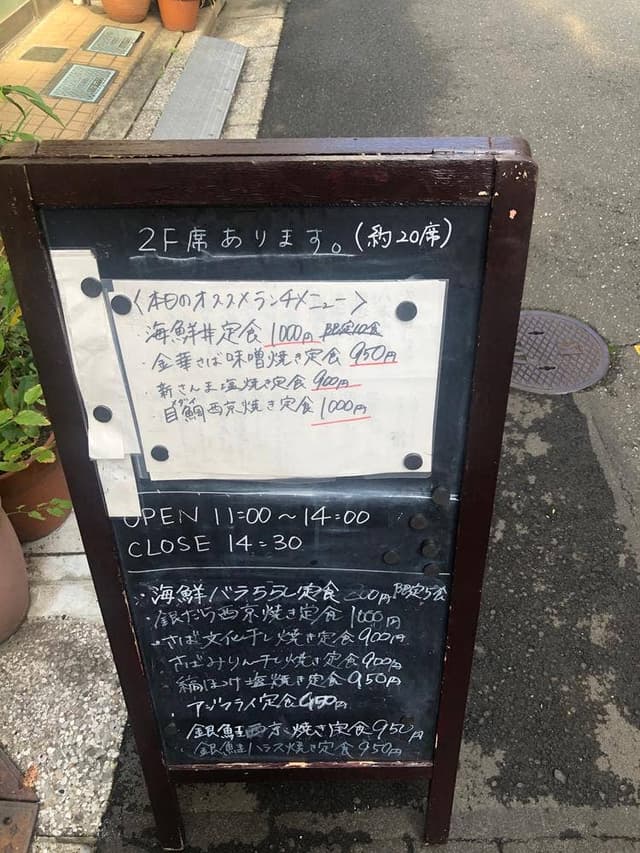 2F席あります。(約20席)
〈本日のオススメランチメニュー〉
海鮮丼定食 1000円 限定10食
・金華さば味噌焼き定食 950円
・新さんま塩焼き定食 900円
メダイ
・目鯛西京焼き定食 1000円
OPEN 11:00〜14:00
CLOSE 14:30
・海鮮バラちらし定食 00円 限定5食
・銀だら西京焼き定食 1000円
・さば文化干し焼き定食 900円
さばみりん干し焼き定食 900円
縞ほっけ塩焼き定食 950円
アジフライ定食 950円
銀鮭西京焼き定食 950円
銀鮭ハラス焼き定食 950円